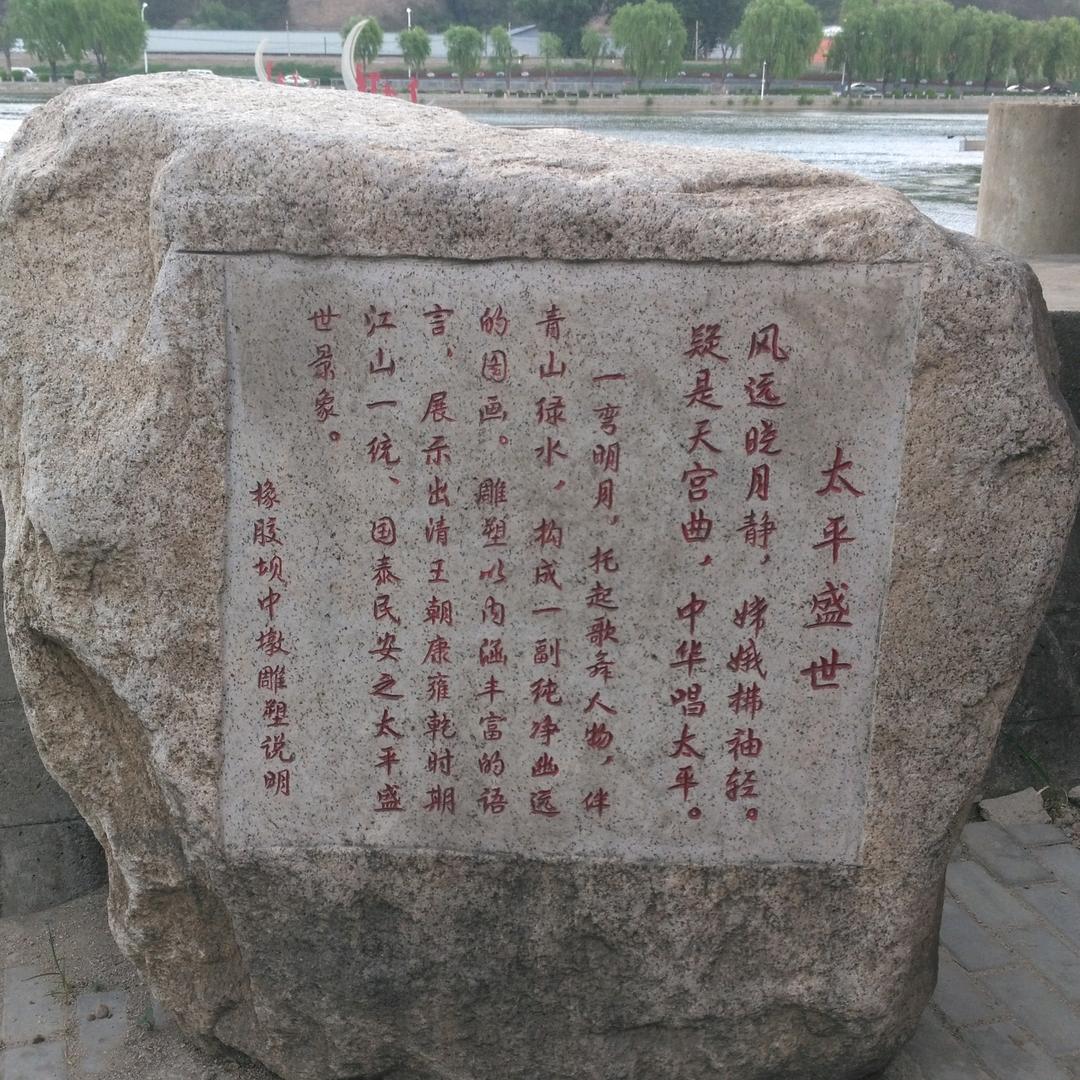 太平盛世
风远晓月静，嫦娥拂袖轻。
疑是天宫曲，中华唱太平。
一弯明月，托起歌舞人物，伴
青山绿水，构成一副纯净幽远
的图画。雕塑以内涵丰富的语
言，展示出清王朝康雍乾时期
江山一统、国泰民安之太平盛
世景象。
橡胶坝中墩雕塑说明